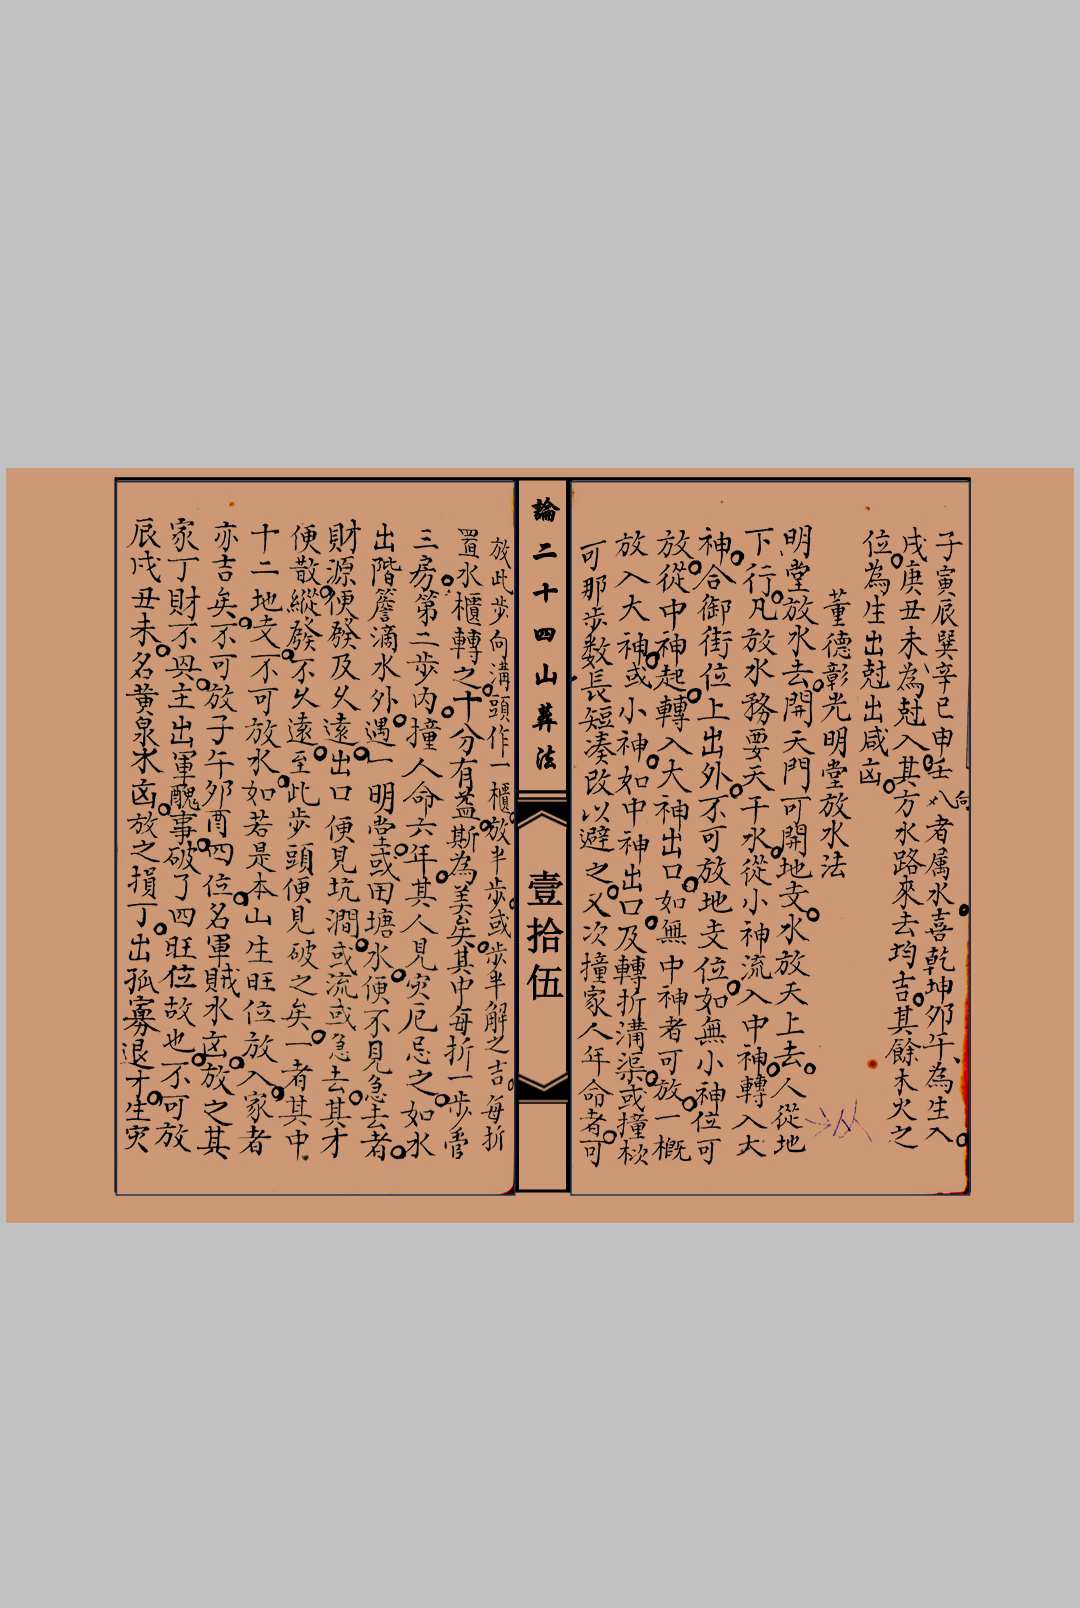 子寅辰巽辛巳申壬八向者属水喜乾坤卯午為生入
戌庚丑未為尅入其方水路來去均吉其餘木火之
位為生出尅出咸凶
董德彰光明堂放水法
明堂放水去開天門可開地支水放天上去人從地
下行凡放水務要天干水從小神流入中神轉入大
神合御街位上出外不可放地支位如無小神位可
放從中神起轉入大神出口如無中神者可放一概
放入大神或小神如中神出口及轉折溝渠或撞
可那步数長短凑改以避之又次撞家人年命者可
論二十四山葬法
壹拾伍
放此步向溝頭作一櫃放半步或步半解之吉每折
置水櫃轉之十分有益斯為美矣其中每折一步管
三房第二步内撞人命六年其人見灾厄忌之如水
出階簷滴水外遇一明堂或田塘水便不見急去者
財源便發及久遠出口便見坑澗或流或急去其才
便散縱發不久遠至此步頭便見破之矣一者其中
十二地支不可放水如若是本山生旺位放入家者
亦吉矣不可放子午卯酉四位名軍賊水凶放之其
家丁財不興主出軍醜事破了四旺位故也不可放
辰戌丑未名黄泉水凶放之損丁出孤寡退才生灾